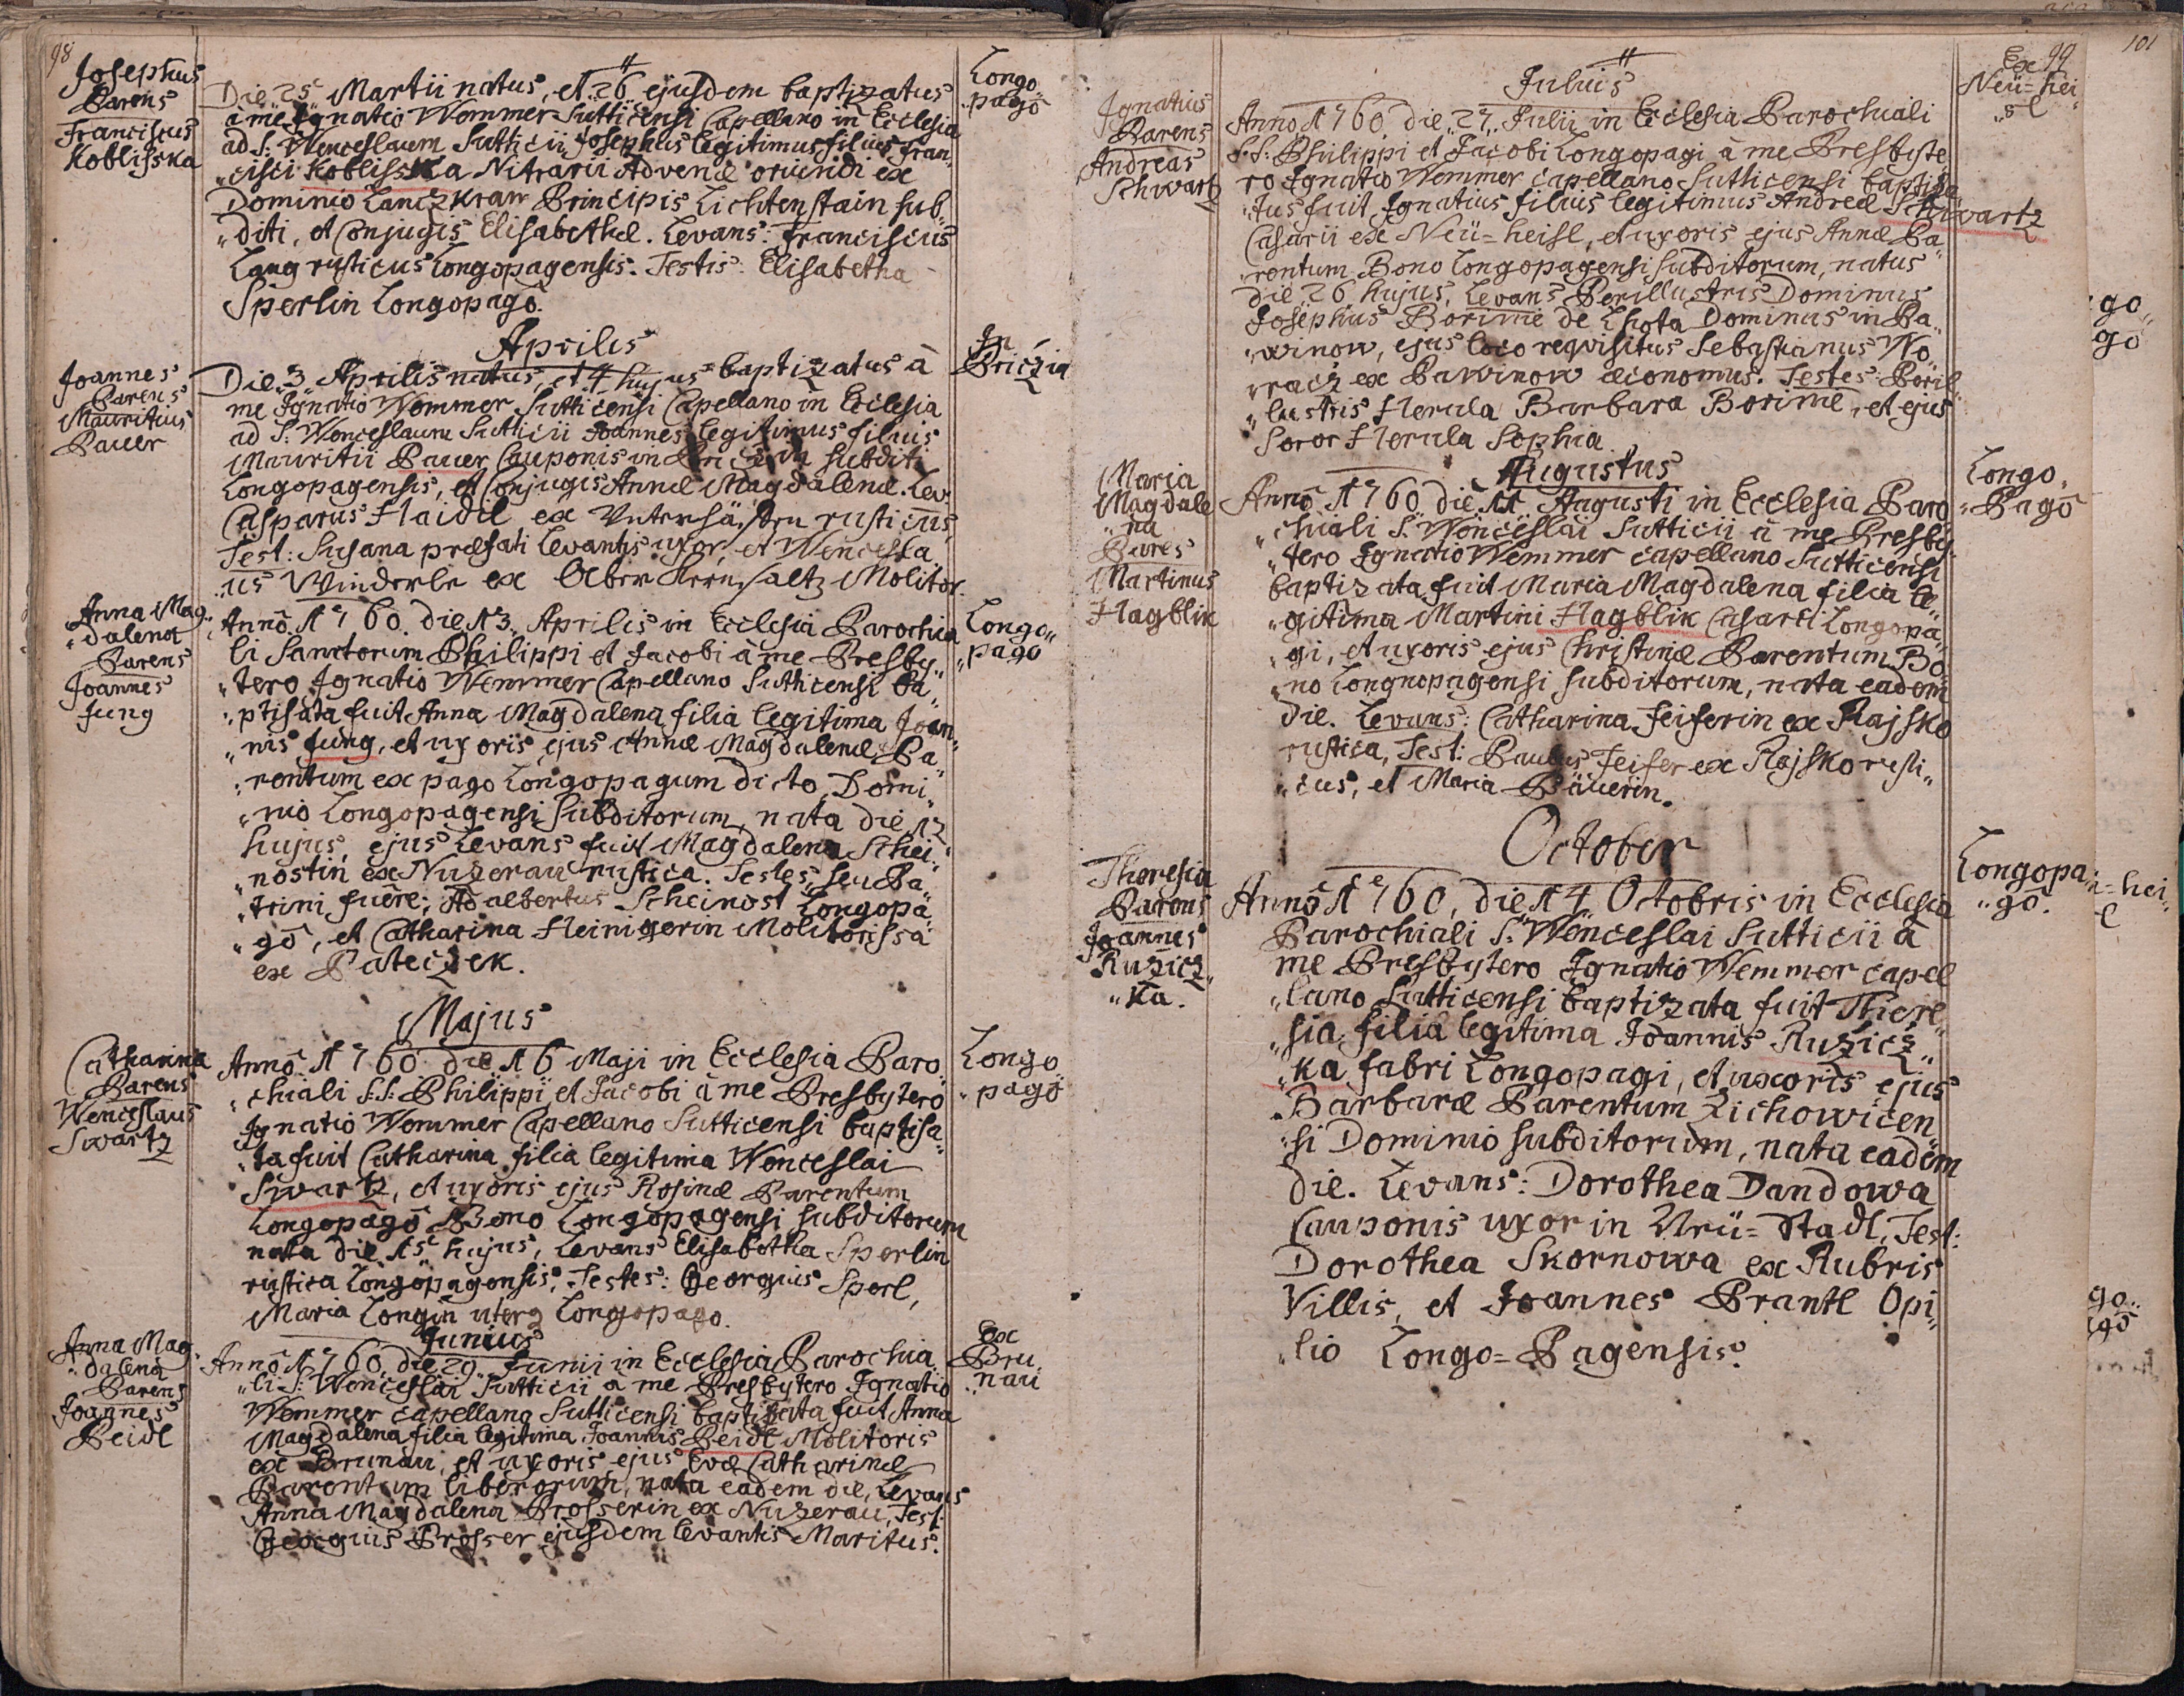 98
Josephus
Parens
Franciscus
Koblisska
Die 25 Martii natus, et 26 ejusdem baptizatus
a me Ignatio Wemmer Sutticensi Capellano in Ecclesia
ad S: Wenceslaum Sutticii Josephus legitimus filius Fran„
„cisci Koblisska Nitrarii Advenæ oriundi ex
Dominio Lanczkraw Principis Lichtenstain sub„
„diti, et Conjugis Elisabethæ. Levans: Franciscus
Lang rusticus Longopagensis. Testis: Elisabetha
Sperlin Longopagô.
Longo„
„pagô
Aprilis
Joannes
Parens
Mauritius
Pauer
Die 3 Aprilis natus, et 4 hujus baptizatus â
me Ignatio Wemmer Sutticensi Capellano in Ecclesia
ad S: Wenceslaum Sutticii Joannes legitimus filius
Mauritii Pauer Cauponis in subditi
Longopagensis, et Conjugis Annæ Magdalenæ. Lev:
Casparus Haidl ex rusticus,
Test: Susana præfati Levantis uxor, et Wencesla„
„us Winderle ex Ober Molitor.
In
Briczin
Anna Mag„
„dalena
Parens
Joannes
Jung
Annô 1760 die 13 Aprilis in Ecclesia Parochia„
li Sanctorum Philippi et Jacobi â me Presby„
„tero Ignatio Wemmer Capellano Sutticensi ba„
„ptisata fuit Anna Magdalena filia legitima Joan„
„nis Jung, et uxoris ejus Annæ Magdalenæ Pa„
„rentum ex pago Longopagum dicto, Domi„
„nio Longopagensi Subditorum, nata die 12
hujus, ejus Levans fuit Magdalena Schei„
„nostin ex Nuzerau rustica. Testes, seu Pa„
„trini fuêre; Adalbertus Scheinost Longopa„
„gô, et Catharina Heinigerin Molitorissa
ex Pateczek.
Longo„
„pagô
Majus
Catharina
Parens
Wenceslaus
Swartz
Annô 1760 die 16 Maji in Ecclesia Paro„
„chiali S:S: Philippi et Jacobi â me Presbytero
Ignatio Wemmer Capellano Sutticensi baptisa„
„ta fuit Catharina filia legitima Wenceslai
Swartz, et uxoris ejus Rosinæ Parentum
Longopagô Bono Longopagensi subditorum
nata die 15 hujus, Levans Elisabetha Sperlin
rustica Longopagensis, Testes: Georgius Sperl,
Maria Longin uterq Longopago.
Longo
„pagô
Junius
Anna Mag„
„dalena
Parens
Joannes
Beidl
Annô 1760 die 29 Junii in Ecclesia Parochia„
„li S: Wenceslai Sutticii a me Presbytero Ignatio
Wemmer capellano Sutticensi baptisata fuit Anna
Magdalena filia legitima Joannis Beidl Molitoris
ex Brunau, et uxoris ejus Evæ Catharinæ
Parentum liberorum, nata eadem die, Levans
Anna Magdalena Prosserin ex Nuzerau, Test:
Georgius Prosser ejusdem levantis Maritus.
Ex
Bru„
„nau
Julius
Ignatius
Parens
Andreas
Schwartz
Anno 1760 die 27 Julii in Ecclesia Parochiali
S:S: Philippi et Jacobi Longopagi â me Presbyte„
ro Ignatio Wemmer capellano Sutticensi baptiza„
„tus fuit Ignatius filius legitimus Andreæ Schwartz
Casarii ex Neü=heisl, et uxoris ejus Annæ Pa„
„rentum Bono Longopagensi subditorum, natus
die 26 hujus, Levans Perillustris Dominus
Josephus Borime de Lhota Dominus in Pa„
„winow, ejus loco requisitus Sebastianus Wo„
„racz ex Pawinow œconomus. Testes: Peril„
„lustris Herula Barbara Borime, et ejus
Soror Herula Sophia.
Ex 99
Neü=hei„
„sl
Augustus
Maria
Magdale
„na
Parens
Martinus
Hagblik
Annô 1760 die 11 Augusti in Ecclesia Paro„
„chiali S: Wenceslai Sutticii â me Presby„
„tero Ignatio Wemmer capellano Sutticensi
baptizata fuit Maria Magdalena filia le„
„gitima Martini Hagblik Casarii Longopa„
„gi, et uxoris ejus Christinæ Parentum Bo„
„no Longnopagensi subditorum, nata eadem
die. Levans: Catharina Feiferin ex Rajsko
rustica, Test: Paulus Feifer ex Rajsko rusti„
„cus, et Maria Bäuerin.
Longo„
„Pagô
October
Theresia
Parens
Joannes
Ruzicz„
„ka.
Annô 1760, die 14 Octobris in Ecclesia
Parochiali S: Wenceslai Sutticii â
me Presbytero Ignatio Wemmer capel„
„lano Sutticensi baptizata fuit There„
„sia filia legitima Joannis Ruzicz„
„ka fabri Longopagi, et uxoris ejus
Barbaræ Parentum Zichowicen„
„si Dominio subditorum, nata eadem
die. Levans: Dorothea Dandowa
Cauponis uxor in Neü=Stadl, Test:
Dorothea Skornowa ex Rubris
Villis, et Joannes Prantl Opi„
„lio Longo=Pagensis.
Longopa„
„gô.
101
go„
gô
=hei„
l
go„
gô